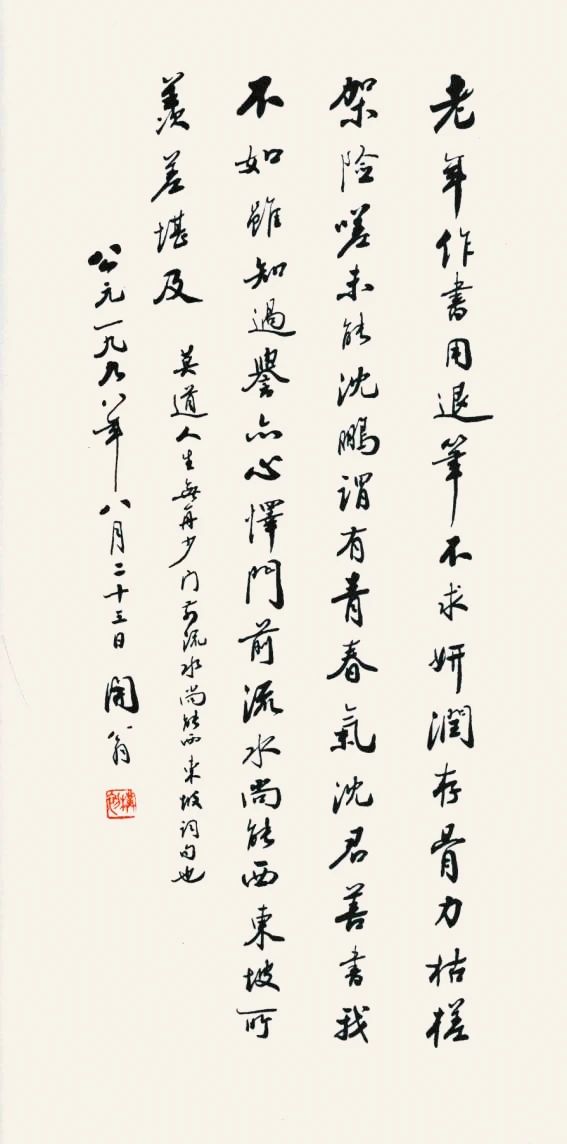 老年作書用退筆不求妍潤存骨力枯槎
架險嗟未能沈鵬謂有青春氣沈君善書我
不如雖知過譽亦心懌門前流水尚能西東坡所
羨差堪及
莫道人生無再少门前流水尚能西東坡詞句也
公元一九九八年八月二十三日
開翁
樸初